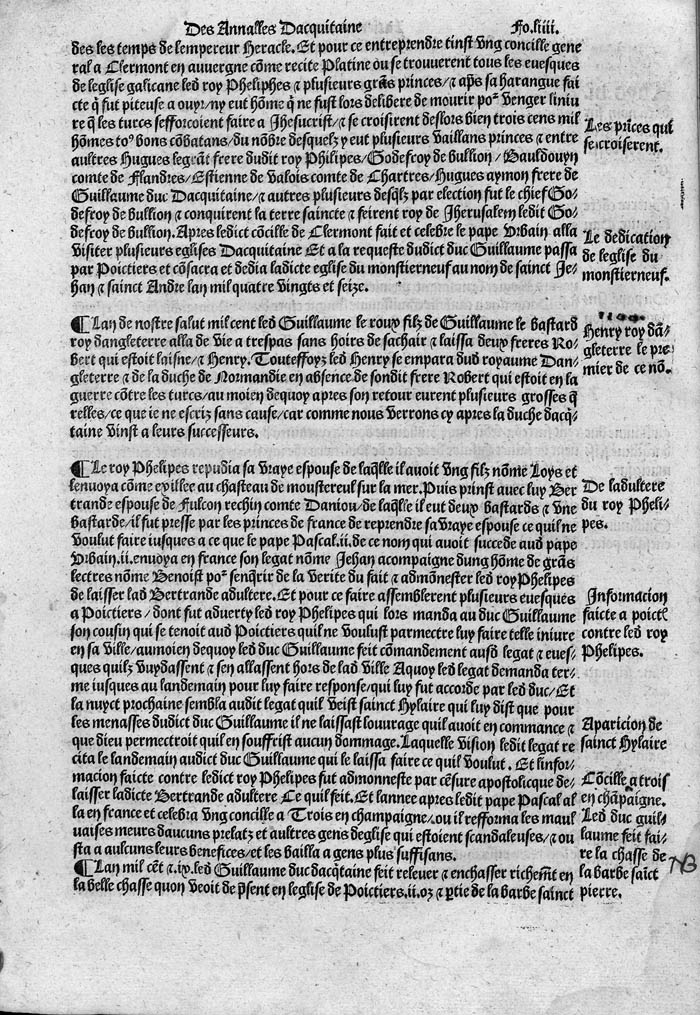 Des Annalles Dacquitaine Fo.liiii.
des les temps de lempereur Heracle. Et pour ce entreprendre tinst vng concille gene
ral a Clermont en auuergne cōme recite Platine ou se trouuerent tous les euesques
de leglise galicane led roy Pheliphes ⁊ plusieurs grās princes/⁊ aps̄ sa harangue fai
cte q̄ fut piteuse a ouyr/ny eut hōme q̄ ne fust lors delibere de mourir poꝰ venger liniu
re q̄ les turcs sefforcoient faire a Jhesucrist/⁊ se croisirent deslors bien trois cens mil
hōmes toꝰ bons cōbatans/du nōbre desquelz y eut plusieurs vaillans princes ⁊ entre
aultres Hugues legrāt frere dudit roy Philipes/Godefroy de bullion/Bauldouyn
comte de Flandres/Estienne de Valois comte de Chartres/Hugues aymon frere de
Guillaume duc Dacquitaine/⁊ autres plusieurs desq̄lz par election fut le chief Go⸗
defroy de bullion ⁊ conquirent la terre saincte ⁊ feirent roy de Jherusalem ledit Go⸗
defroy de bullion. Apres ledict cōcille de Clermont fait et celebre le pape Vrbain alla
visiter plusieurs eglises Dacquitaine Et a la requeste dudict duc Guillaume passa
par Poictiers et cōsacra et dedia ladicte eglise du monstierneuf au nom de sainct Je⸗
han ⁊ sainct Andre lan mil quatre vingts et seize.
Les prīces qui
se croiserent.
Le dedication
de leglise du
monstierneuf.
¶Lan de nostre salut mil cent led Guillaume le roux filz de Guillaume le bastard
roy dangleterre alla de vie a trespas sans hoirs de sa chair ⁊ laissa deux freres Ro⸗
bert qui estoit laisne/⁊ Henry. Touteffoyz led Henry se empara dud royaume Dan⸗
gleterre ⁊ de la duche de Normandie en absence de sondit frere Robert qui estoit en la
guerre cōtre les turcs/au moien dequoy apres son retour eurent plusieurs grosses q̄
relles/ce que ie ne escriz sans cause/car comme nous verrons cy apres la duche dacq̄⸗
taine vinst a leurs successeurs.
Henry roy dā⸗
gleterre le pre
mier de ce nō.
¶Le roy Phelipes repudia sa vraye espouse de laq̄lle il auoit vng filz nōme Loys et
lenuoya cōme exillee au chasteau de moustereul sur la mer. Puis prinst auec luy Ber
trande espouse de Fulcon rechin comte Daniou/de laq̄lle il eut deux bastards ⁊ vne
bastarde/il fut presse par les princes de france de reprendre sa vraye espouse ce quil ne
voulut faire iusques a ce que le pape Pascal.ii.de ce nom qui auoit succede aud pape
Vrbain.ii.enuoya en france son legat nōme Jehan acompaigne dung hōme de grās
lectres nōme Benoist poꝰ senq̄rir de la verite du fait ⁊ admōnester led roy Phelipes
de laisser lad Bertrande adultere. Et pour ce faire assemblerent plusieurs euesques
a Poictiers/dont fut aduerty led roy Phelipes qui lors manda au duc Guillaume
son cousin qui se tenoit aud Poictiers quil ne voulust parmectre luy faire telle iniure
en sa ville/au moien dequoy led duc Guillaume feit cōmandement ausd legat ⁊ eues⸗
ques quilz vuydassent ⁊ sen allassent hors de lad ville Aquoy led legat demanda ter⸗
me iusques au landemain pour luy faire response/qui luy fut accorde par led duc/Et
la nuyct prochaine sembla audit legat quil veist sainct Hylaire qui luy dist que pour
les menasses dudict duc Guillaume il ne laissast louurage quil auoit en commance ⁊
que dieu permectroit quil en souffrist aucun dommage. Laquelle vision ledit legat re
cita le landemain audict duc Guillaume qui le laissa faire ce quil voulut. Et linfor⸗
macion faicte contre ledict roy Phelipes fut admonneste par cēsure apostolicque de⸗
laisser ladicte Bertrande adultere Ce quil feit. Et lannee apres ledit pape Pascal al
la en france et celebra vng concille a Trois en champaigne/ou il refforma les maul
uaises meurs daucuns prelatz et aultres gens deglise qui estoient scandaleuses/⁊ ou
sta a aulcuns leurs benefices/et les bailla a gens plus suffisans.
¶Lan mil cēt ⁊.ix.led Guillaume duc dacq̄taine feit releuer ⁊ enchasser richemt̄ en
la belle chasse quon veoit de p̄sent en leglise de Poictiers.ii.oz ⁊ p̄tie de la barbe sainct
De ladultere
du roy Pheli⸗
pes.
Informacion
faicte a poictꝭ
contre led roy
Phelipes.
Aparicion de
sainct Hylaire
Cōcille a trois
en chāpaigne.
Led duc guil⸗
laume feit fai⸗
re la chasse de
la barbe saīct
pierre.
NB